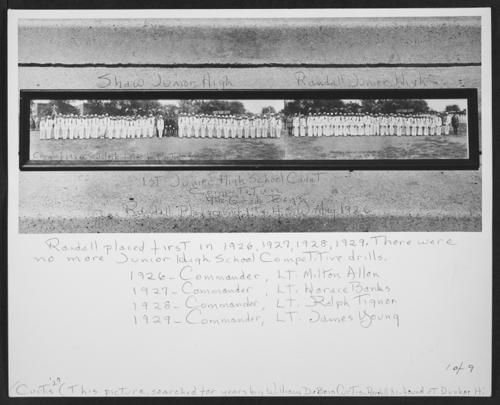 Shaw Junior High Randall Junior High
1st Junior High School Cadet
Competition
9th Grade Boys
Randall May 1926
Randall placed first in 1926, 1927, 1928, 1929. There were
no more Junior High School Competitive drills.
1926 - Commander, LT. Milton Allen
1927 - Commander, LT. Horace Banks
1928 - Commander, LT. Ralph Tignor
1929 - Commander, LT. James Young
1 of 9
Curtis '29 (This picture searched for years by William DuBois Curtis